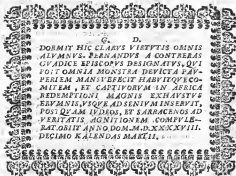 D.
DORMIT HIC CLARVS VIRTVTIS OMNIS
ALVMNVS. FERNANDVS A CONTRERAS
GVADICE EPISCOPVS DESIGNATVS, QVI
POST OMNIA MONSTRA DEVICTA PAV-
PERIEM MANSVEFECIT HABVITQVE CO-
MITEM, ET CAPTIVORVM IN AFRICA
REDEMPTIONI MAGNIS EXHAVSTVS
ERVMNIS, VSQVE AD SENIVM INSERVIIT,
POSTQVAM IVDEOS, ET SARACENOS AD
VERITATIS AGNITIONEM COMPVLE-
RAT. OBIIT ANNO DOM. M.D.XXXXVIII.
DECIMO KALENDAS MARTII.